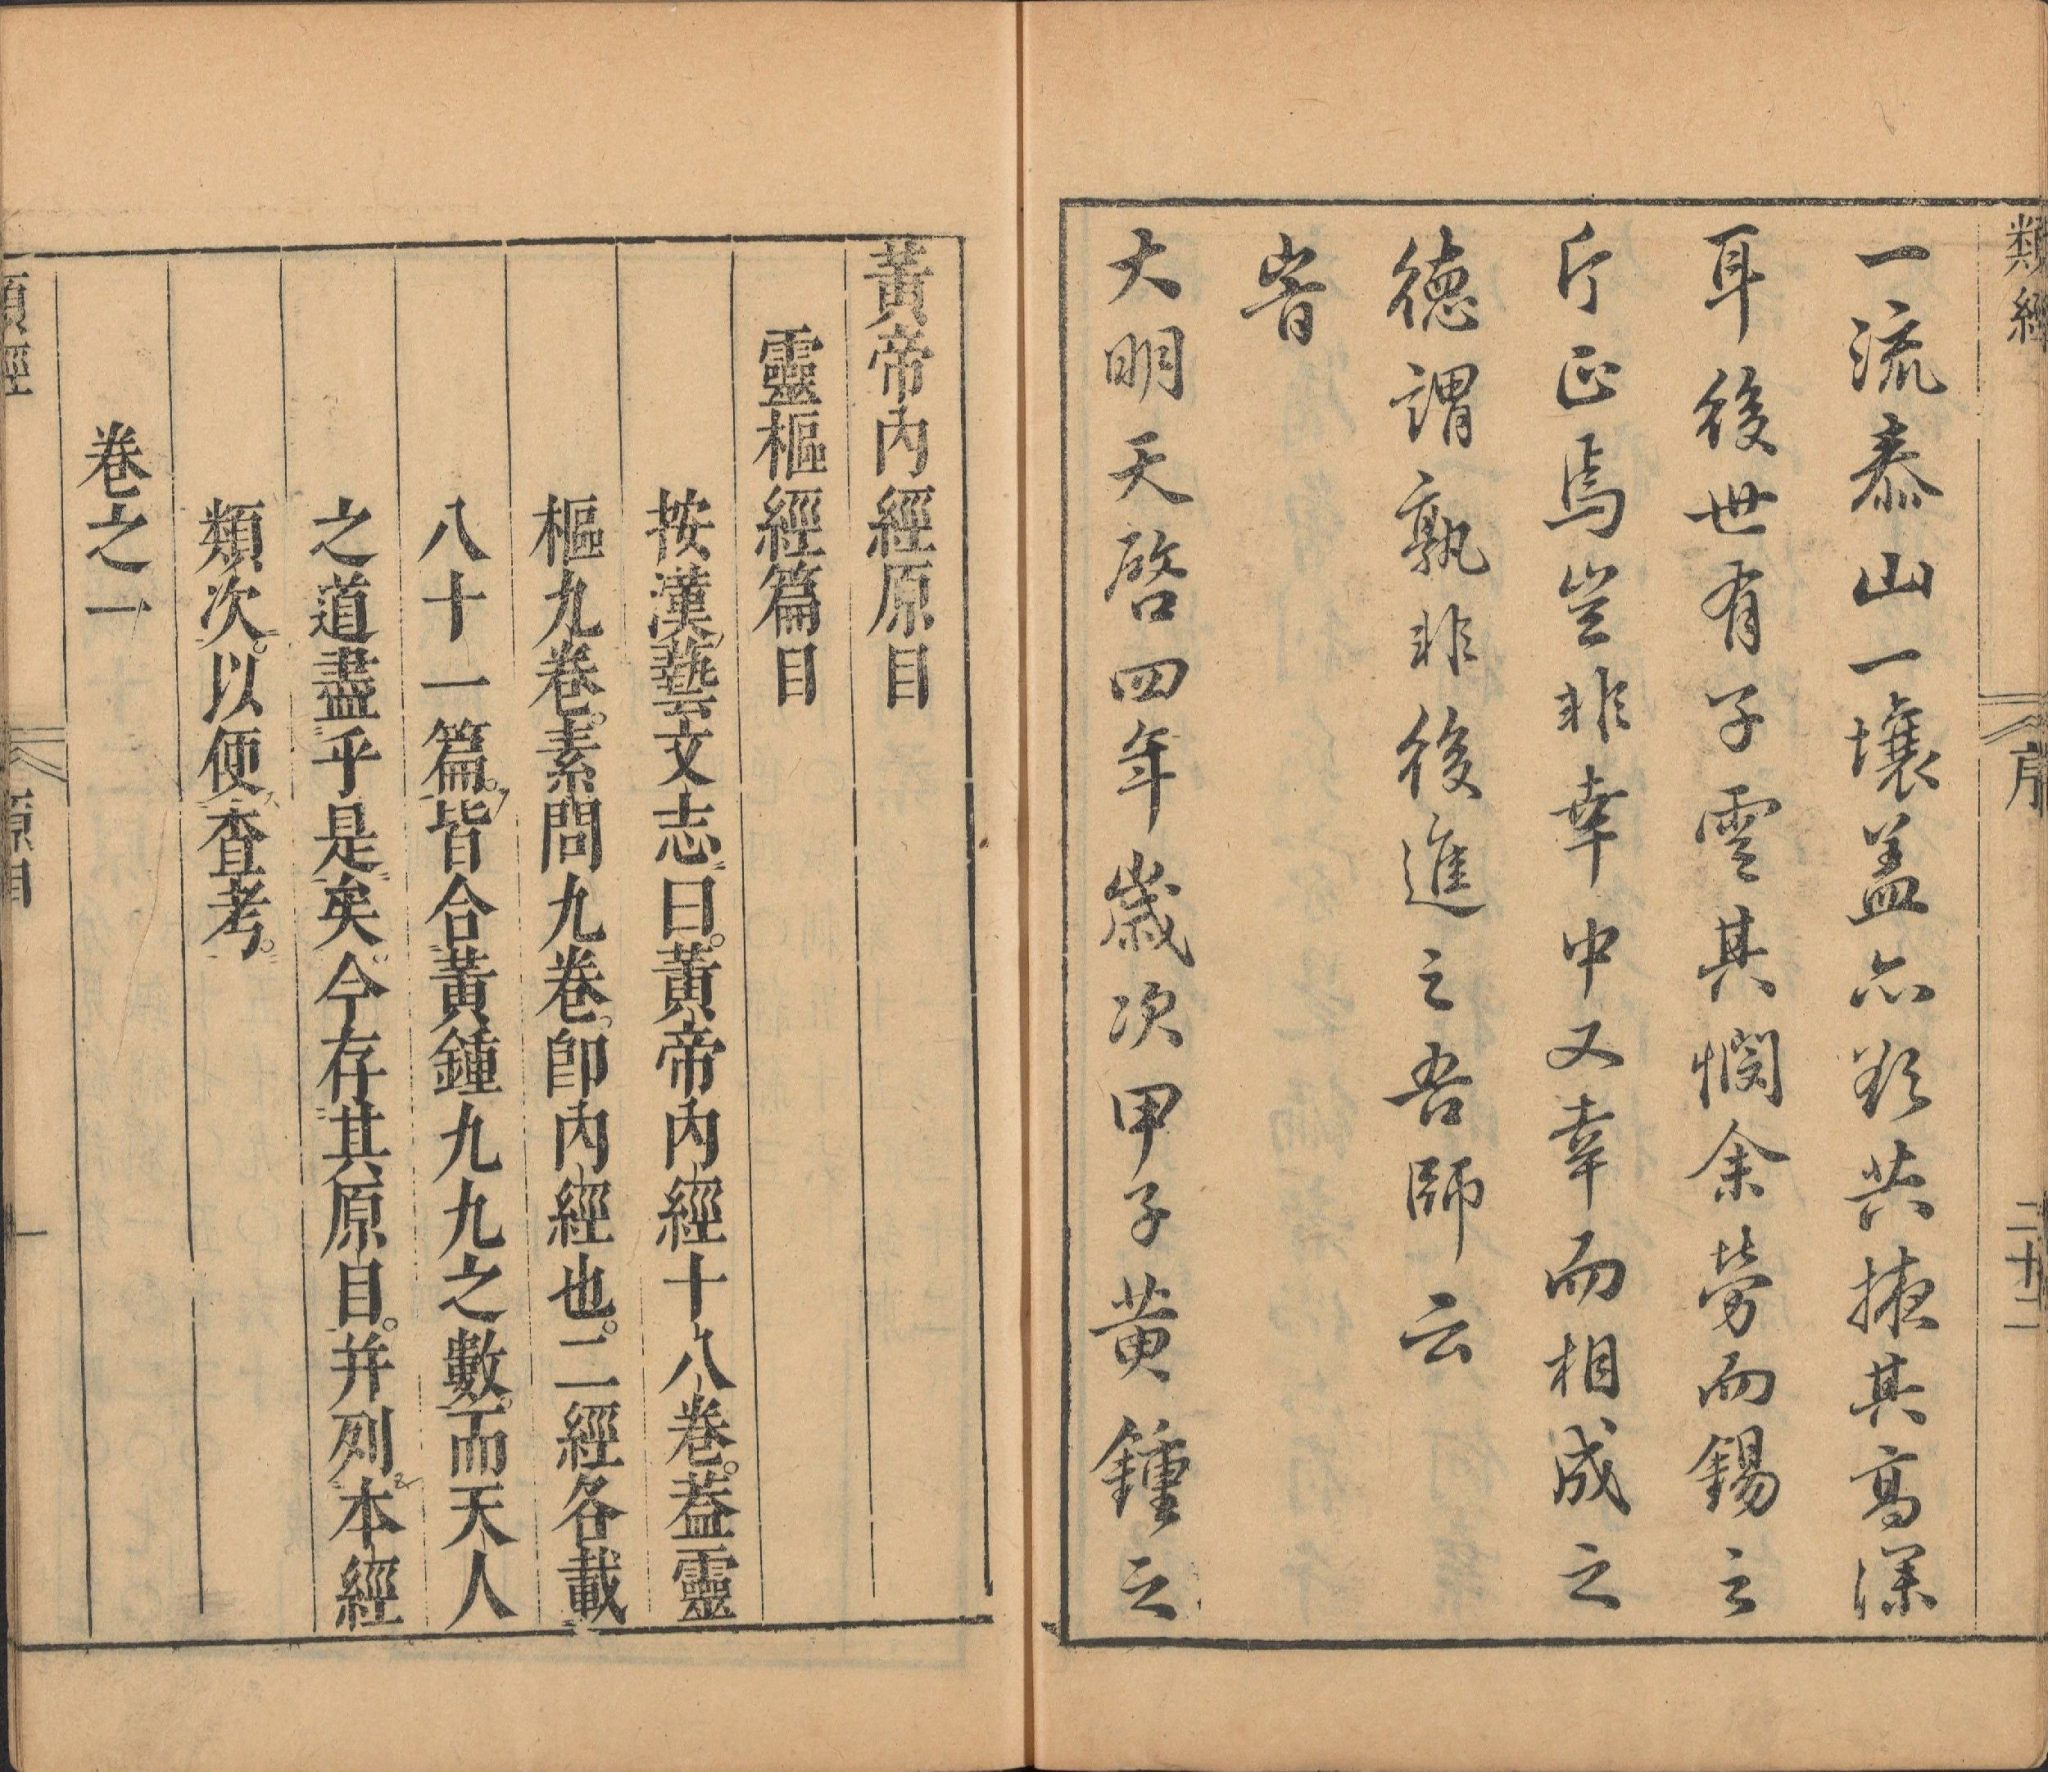 類經
序
二十二
一流泰山一壤蓋亦欲共掖其高深
耳後世有子雲其憫余勞而錫之
斤正焉豈非幸中又幸而相成之
德謂孰非後進之吾師云
旹
大明天啓四年歲次甲子黃鍾之
黃帝內經原目
靈樞經篇目
按漢藝文志曰。黃帝內經十八卷。葢靈
樞九卷。素問九卷。卽內經也。二經各載
八十一篇。皆合黃鍾九九之數。而天人
之道盡乎是矣。今存其原目。并列本經
類次。以便查考。
卷之一
類經
原目
一